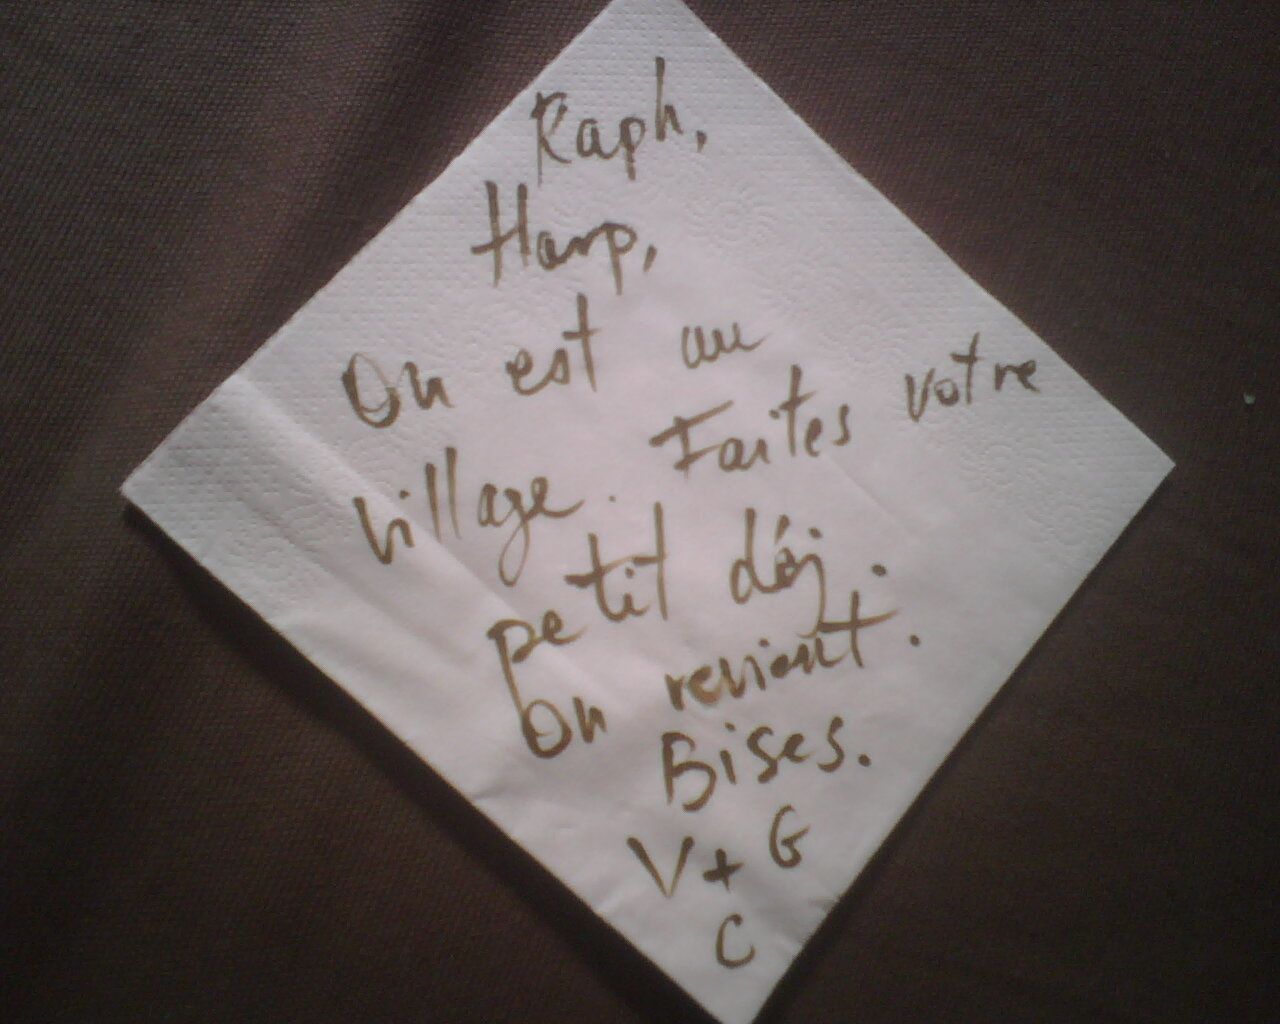 Raph,
Harp,
On est au
village. Faites votre
petit déj.
On revient.
Bises.
V + G
C